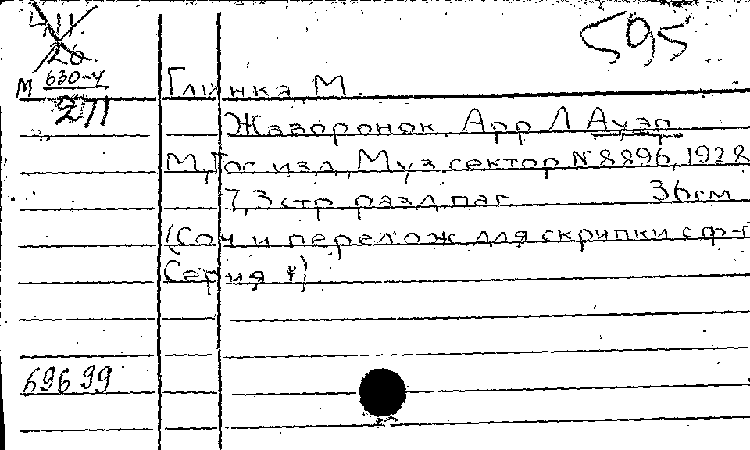 595
М 630-4
211
Глинка, М.
Жаворонок. Арр Л Ауэр
М, Гос. изд, Муз. сектор № 8896, 1928
7, 3 стр. разд. паг. 36 см
(Соч и перелож для скрипки с ф-п
Серия 4)
69699